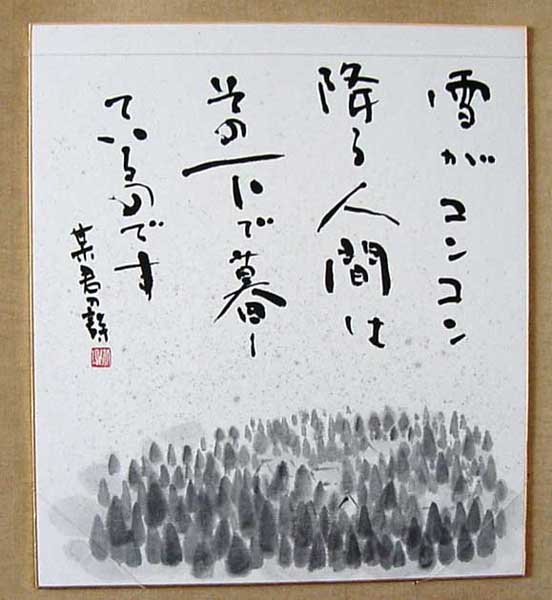 雪がコンコン
降る人間は
その下で暮し
ているのです
某君の詩